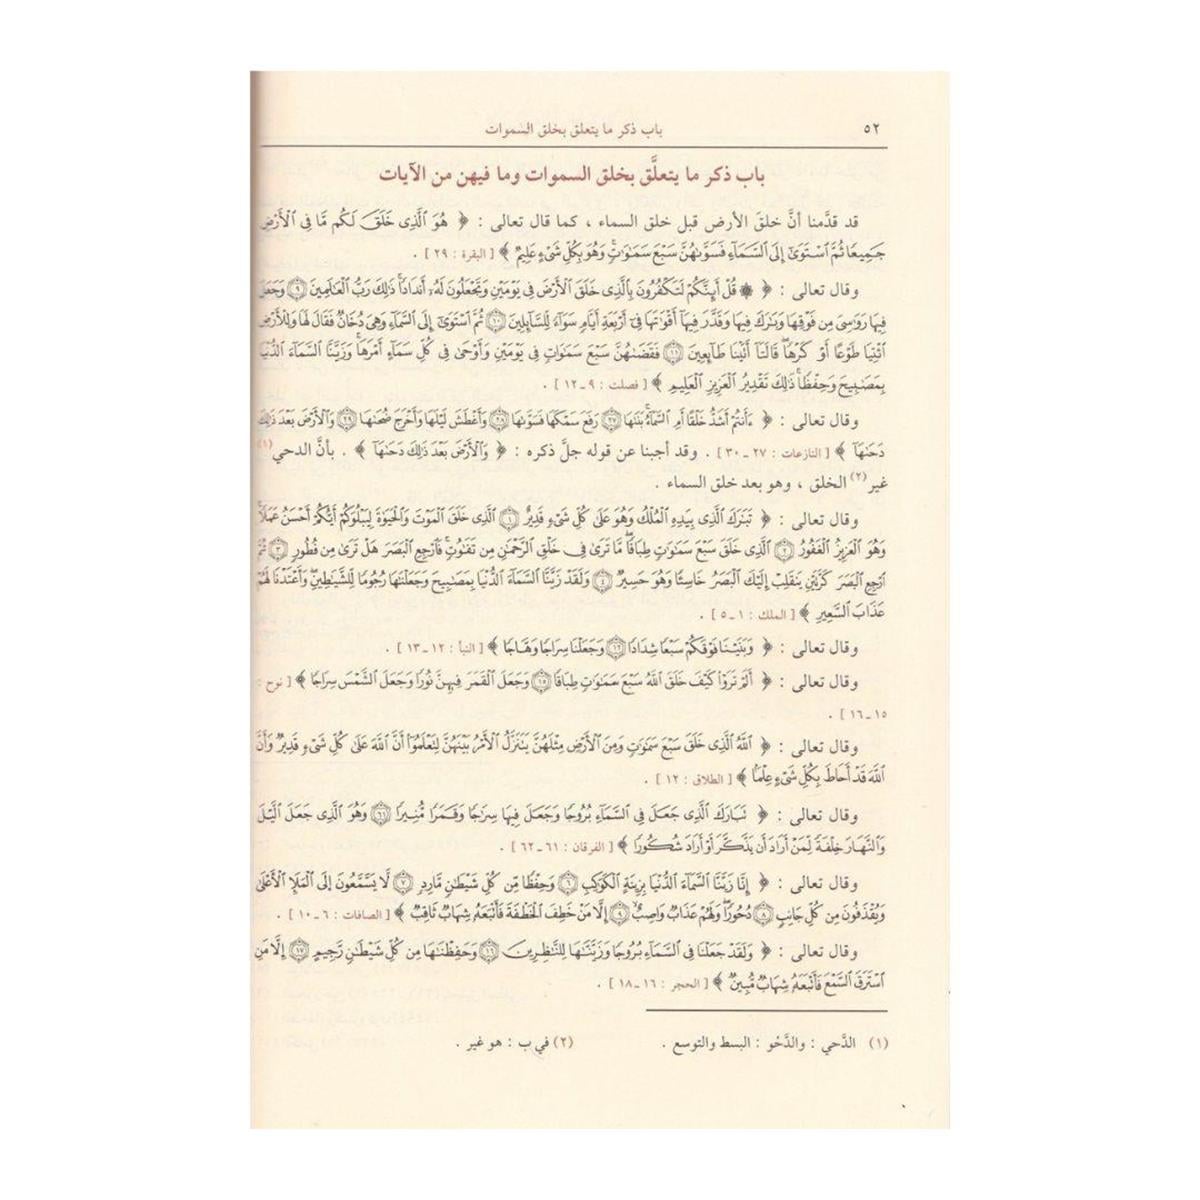 ٥٢ باب ذكر ما يتعلق بخلق السموات
باب ذكر ما يتعلَّق بخلق السموات وما فيهن من الآيات
قد قدَّمنا أنَّ خلقَ الأرض قبل خلق السماء ، كما قال تعالى : ﴿ هُوَ ٱلَّذِى خَلَقَ لَكُم مَّا فِى ٱلْأَرْضِ
جَمِيعًا ثُمَّ ٱسْتَوَىٰٓ إِلَى ٱلسَّمَآءِ فَسَوَّىٰهُنَّ سَبْعَ سَمَٰوَٰتٍ ۚ وَهُوَ بِكُلِّ شَىْءٍ عَلِيمٌ ﴾ [ البقرة : ٢٩ ] .
وقال تعالى : ﴿ ۞ قُلْ أَئِنَّكُمْ لَتَكْفُرُونَ بِٱلَّذِى خَلَقَ ٱلْأَرْضَ فِى يَوْمَيْنِ وَتَجْعَلُونَ لَهُۥٓ أَندَادًا ۚ ذَٰلِكَ رَبُّ ٱلْعَٰلَمِينَ ۝٩ وَجَعَلَ
فِيهَا رَوَٰسِىَ مِن فَوْقِهَا وَبَٰرَكَ فِيهَا وَقَدَّرَ فِيهَآ أَقْوَٰتَهَا فِىٓ أَرْبَعَةِ أَيَّامٍ سَوَآءً لِّلسَّآئِلِينَ ۝١٠ ثُمَّ ٱسْتَوَىٰٓ إِلَى ٱلسَّمَآءِ وَهِىَ دُخَانٌ فَقَالَ لَهَا وَلِلْأَرْضِ
ٱئْتِيَا طَوْعًا أَوْ كَرْهًا قَالَتَآ أَتَيْنَا طَآئِعِينَ ۝١١ فَقَضَىٰهُنَّ سَبْعَ سَمَٰوَاتٍ فِى يَوْمَيْنِ وَأَوْحَىٰ فِى كُلِّ سَمَآءٍ أَمْرَهَا ۚ وَزَيَّنَّا ٱلسَّمَآءَ ٱلدُّنْيَا
بِمَصَٰبِيحَ وَحِفْظًا ۚ ذَٰلِكَ تَقْدِيرُ ٱلْعَزِيزِ ٱلْعَلِيمِ ﴾ [ فصلت : ٩ـ١٢ ] .
وقال تعالى : ﴿ ءَأَنتُمْ أَشَدُّ خَلْقًا أَمِ ٱلسَّمَآءُ ۚ بَنَىٰهَا ۝٢٧ رَفَعَ سَمْكَهَا فَسَوَّىٰهَا ۝٢٨ وَأَغْطَشَ لَيْلَهَا وَأَخْرَجَ ضُحَىٰهَا ۝٢٩ وَٱلْأَرْضَ بَعْدَ ذَٰلِكَ
دَحَىٰهَآ ﴾ [ النازعات : ٢٧ ـ ٣٠ ] . وقد أجبنا عن قوله جلَّ ذكره : ﴿ وَٱلْأَرْضَ بَعْدَ ذَٰلِكَ دَحَىٰهَآ ﴾ . بأنَّ الدحي(١)
غير(٢) الخلق ، وهو بعد خلق السماء .
وقال تعالى : ﴿ تَبَٰرَكَ ٱلَّذِى بِيَدِهِ ٱلْمُلْكُ وَهُوَ عَلَىٰ كُلِّ شَىْءٍ قَدِيرٌ ۝١ ٱلَّذِى خَلَقَ ٱلْمَوْتَ وَٱلْحَيَوٰةَ لِيَبْلُوَكُمْ أَيُّكُمْ أَحْسَنُ عَمَلًا ۚ
وَهُوَ ٱلْعَزِيزُ ٱلْغَفُورُ ۝٢ ٱلَّذِى خَلَقَ سَبْعَ سَمَٰوَٰتٍ طِبَاقًا ۖ مَّا تَرَىٰ فِى خَلْقِ ٱلرَّحْمَٰنِ مِن تَفَٰوُتٍ ۖ فَٱرْجِعِ ٱلْبَصَرَ هَلْ تَرَىٰ مِن فُطُورٍ ۝٣ ثُمَّ
ٱرْجِعِ ٱلْبَصَرَ كَرَّتَيْنِ يَنقَلِبْ إِلَيْكَ ٱلْبَصَرُ خَاسِئًا وَهُوَ حَسِيرٌ ۝٤ وَلَقَدْ زَيَّنَّا ٱلسَّمَآءَ ٱلدُّنْيَا بِمَصَٰبِيحَ وَجَعَلْنَٰهَا رُجُومًا لِّلشَّيَٰطِينِ ۖ وَأَعْتَدْنَا لَهُمْ
عَذَابَ ٱلسَّعِيرِ ﴾ [ الملك : ١ـ٥ ] .
وقال تعالى : ﴿ وَبَنَيْنَا فَوْقَكُمْ سَبْعًا شِدَادًا ۝١٢ وَجَعَلْنَا سِرَاجًا وَهَّاجًا ﴾ [ النبأ : ١٢ـ١٣ ] .
وقال تعالى : ﴿ أَلَمْ تَرَوْا۟ كَيْفَ خَلَقَ ٱللَّهُ سَبْعَ سَمَٰوَٰتٍ طِبَاقًا ۝١٥ وَجَعَلَ ٱلْقَمَرَ فِيهِنَّ نُورًا وَجَعَلَ ٱلشَّمْسَ سِرَاجًا ﴾ [ نوح :
١٥ـ١٦ ] .
وقال تعالى : ﴿ ٱللَّهُ ٱلَّذِى خَلَقَ سَبْعَ سَمَٰوَٰتٍ وَمِنَ ٱلْأَرْضِ مِثْلَهُنَّ يَتَنَزَّلُ ٱلْأَمْرُ بَيْنَهُنَّ لِتَعْلَمُوٓا۟ أَنَّ ٱللَّهَ عَلَىٰ كُلِّ شَىْءٍ قَدِيرٌ وَأَنَّ
ٱللَّهَ قَدْ أَحَاطَ بِكُلِّ شَىْءٍ عِلْمًا ﴾ [ الطلاق : ١٢ ] .
وقال تعالى : ﴿ تَبَارَكَ ٱلَّذِى جَعَلَ فِى ٱلسَّمَآءِ بُرُوجًا وَجَعَلَ فِيهَا سِرَٰجًا وَقَمَرًا مُّنِيرًا ۝٦١ وَهُوَ ٱلَّذِى جَعَلَ ٱلَّيْلَ
وَٱلنَّهَارَ خِلْفَةً لِّمَنْ أَرَادَ أَن يَذَّكَّرَ أَوْ أَرَادَ شُكُورًا ﴾ [ الفرقان : ٦١ـ٦٢ ] .
وقال تعالى : ﴿ إِنَّا زَيَّنَّا ٱلسَّمَآءَ ٱلدُّنْيَا بِزِينَةٍ ٱلْكَوَاكِبِ ۝٦ وَحِفْظًا مِّن كُلِّ شَيْطَٰنٍ مَّارِدٍ ۝٧ لَّا يَسَّمَّعُونَ إِلَى ٱلْمَلَإِ ٱلْأَعْلَىٰ
وَيُقْذَفُونَ مِن كُلِّ جَانِبٍ ۝٨ دُحُورًا ۖ وَلَهُمْ عَذَابٌ وَاصِبٌ ۝٩ إِلَّا مَنْ خَطِفَ ٱلْخَطْفَةَ فَأَتْبَعَهُۥ شِهَابٌ ثَاقِبٌ ﴾ [ الصافات : ٦ـ١٠ ] .
وقال تعالى : ﴿ وَلَقَدْ جَعَلْنَا فِى ٱلسَّمَآءِ بُرُوجًا وَزَيَّنَّٰهَا لِلنَّٰظِرِينَ ۝١٦ وَحَفِظْنَٰهَا مِن كُلِّ شَيْطَٰنٍ رَّجِيمٍ ۝١٧ إِلَّا مَنِ
ٱسْتَرَقَ ٱلسَّمْعَ فَأَتْبَعَهُۥ شِهَابٌ مُّبِينٌ ﴾ [ الحجر : ١٦ـ١٨ ] .
(١) الدَّحي : والدَّحْو : البسط والتوسع . (٢) في ب : هو غير .